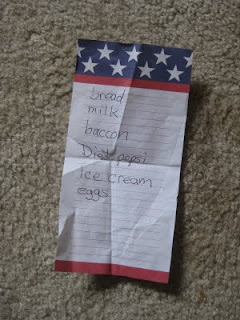 bread
milk
baccon
Diet pepsi
Ice cream
eggs